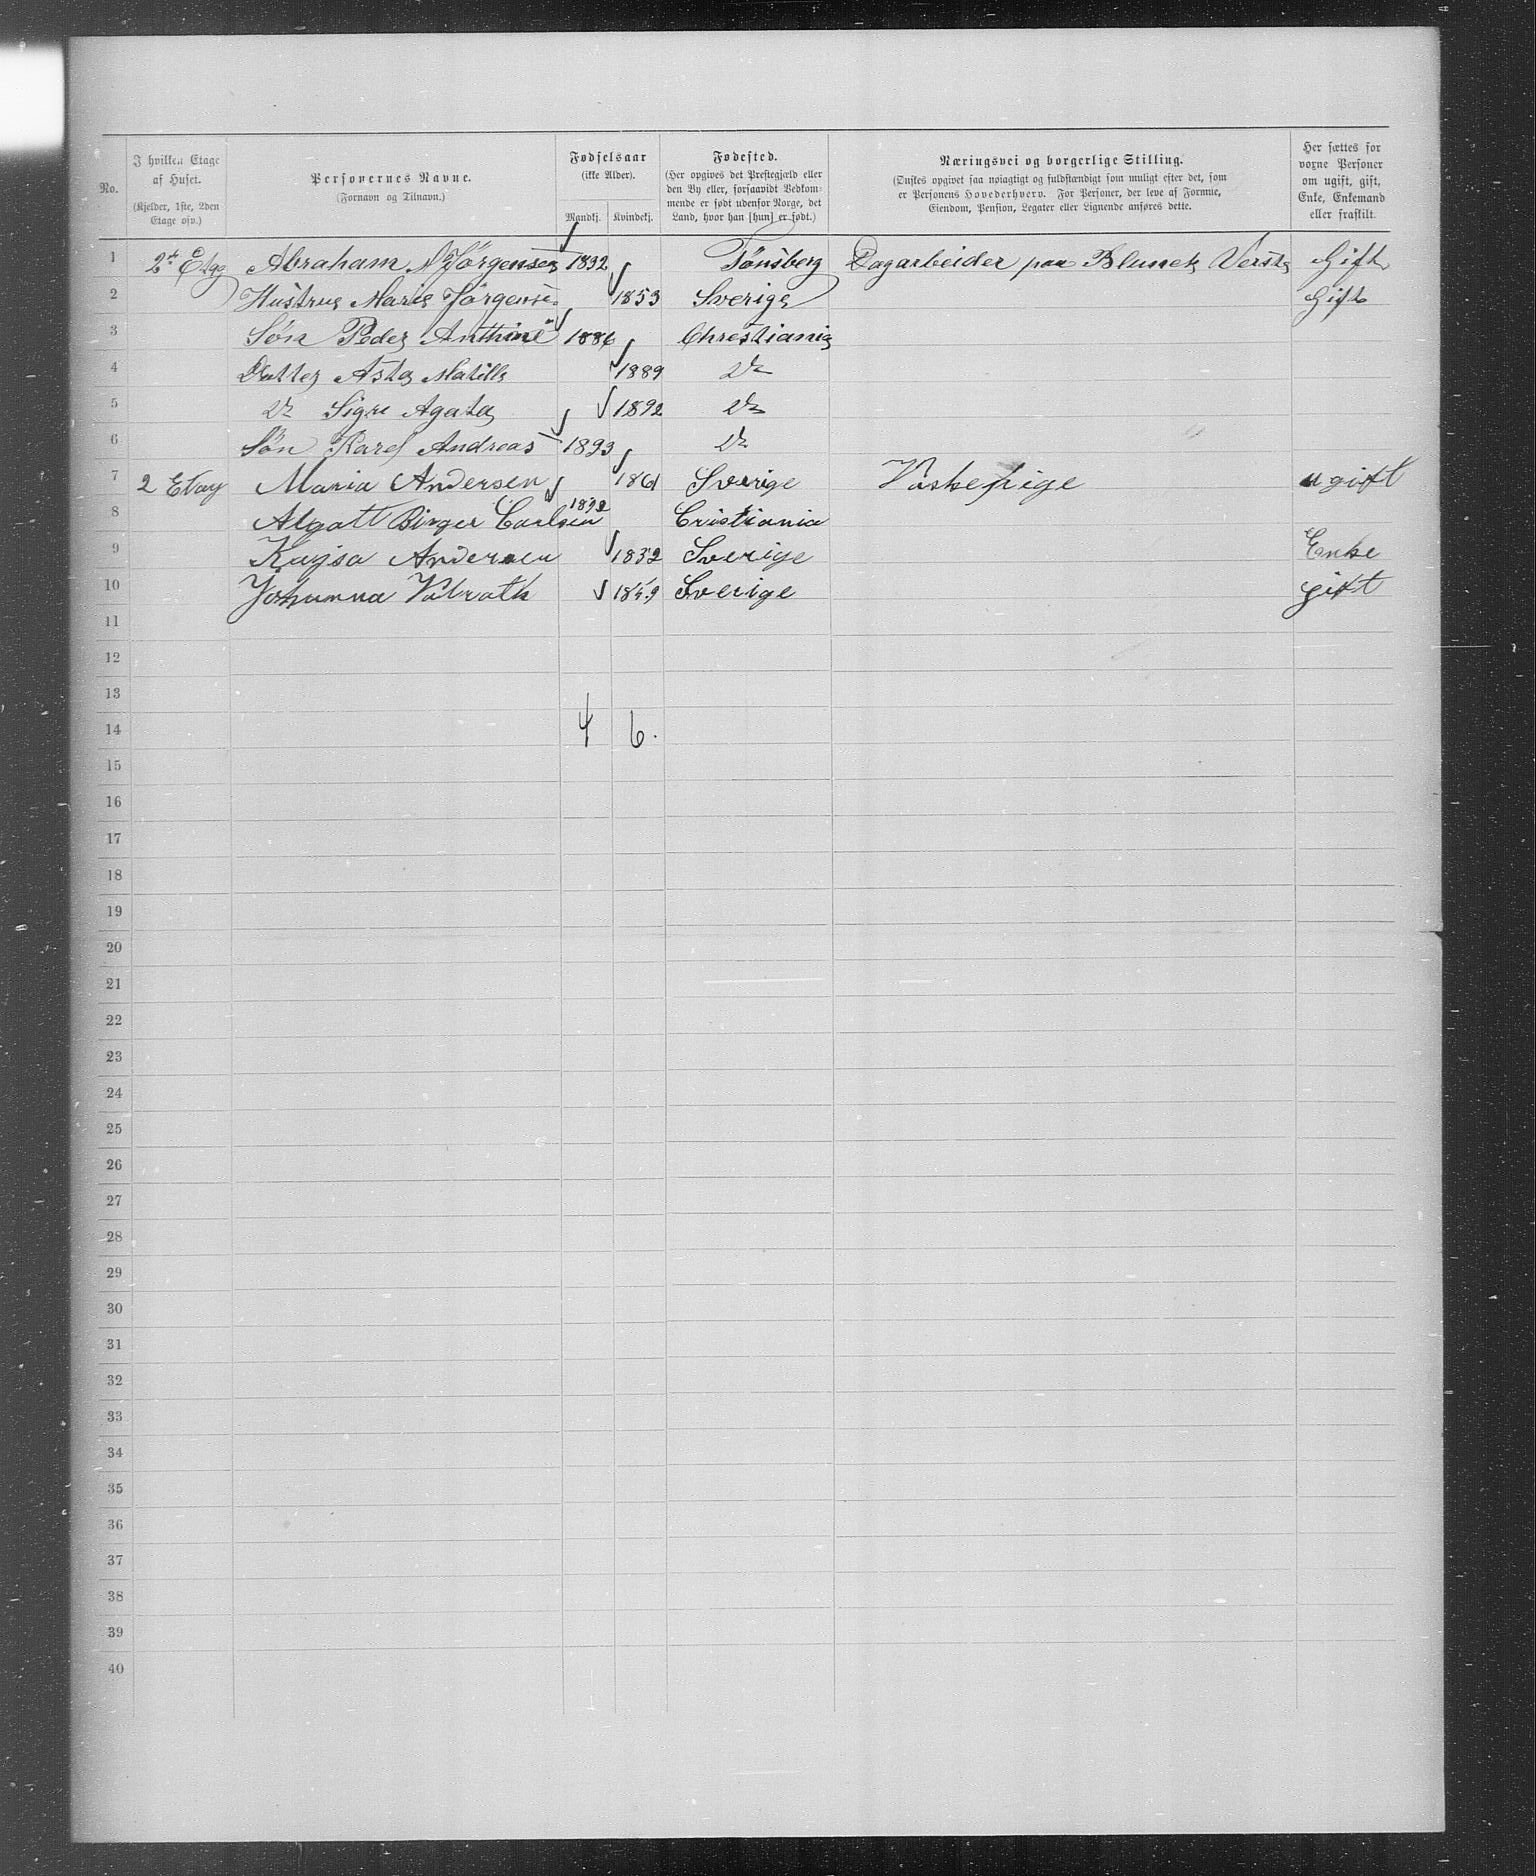 No.
I hvilken Etage
af Huset.
(Kjelder, 1ste, 2den
Etage osv.)
Personernes Navne.
(Fornavn og Tilnavn.)
Fødselsaar
(ikke Alder).
Mandkj. Kvindekj.
Fødested.
(Her opgives det Prestegjæld eller
den By eller, forsaavidt Vedkom-
mende er født udenfor Norge, det
Land, hvor han [hun] er født.)
Næringsvei og borgerlige Stilling.
(Ønskes opgivet saa nøiagtigt og fuldstændigt som muligt efter det, som
er Personens Hovederhverv. For Personer, der leve af Formue,
Eiendom, Pension, Legater eller Lignende anføres dette.
Her sættes for
voxne Personer
om ugift, gift,
Enke, Enkemand
eller fraskilt.
1 Abraham N Jörgensen Tönsberg Dagarbeider paa Gift
2 Hustrue Marie Jörgense 1853 Sverige Gift
3 Sön Peder 1886 Christiania
4 Datter Asta Matille 1889 Do
5 Do Agata 1892 Do
6 Sön Karel Andreas 1893 Do
7 2 Etay Maria Andersen 1861 Sverige Vaskepige ugift
8 Algott Birger Carlsen 1892 Cristiania
9 Kajsa Andersen 1832 Sverige Enke
10 Johanna 1849 Sverige gift
11
12
13
14 4 6.
15
16
17
18
19
20
21
22
23
24
25
26
27
28
29
30
31
32
33
34
35
36
37
38
39
40